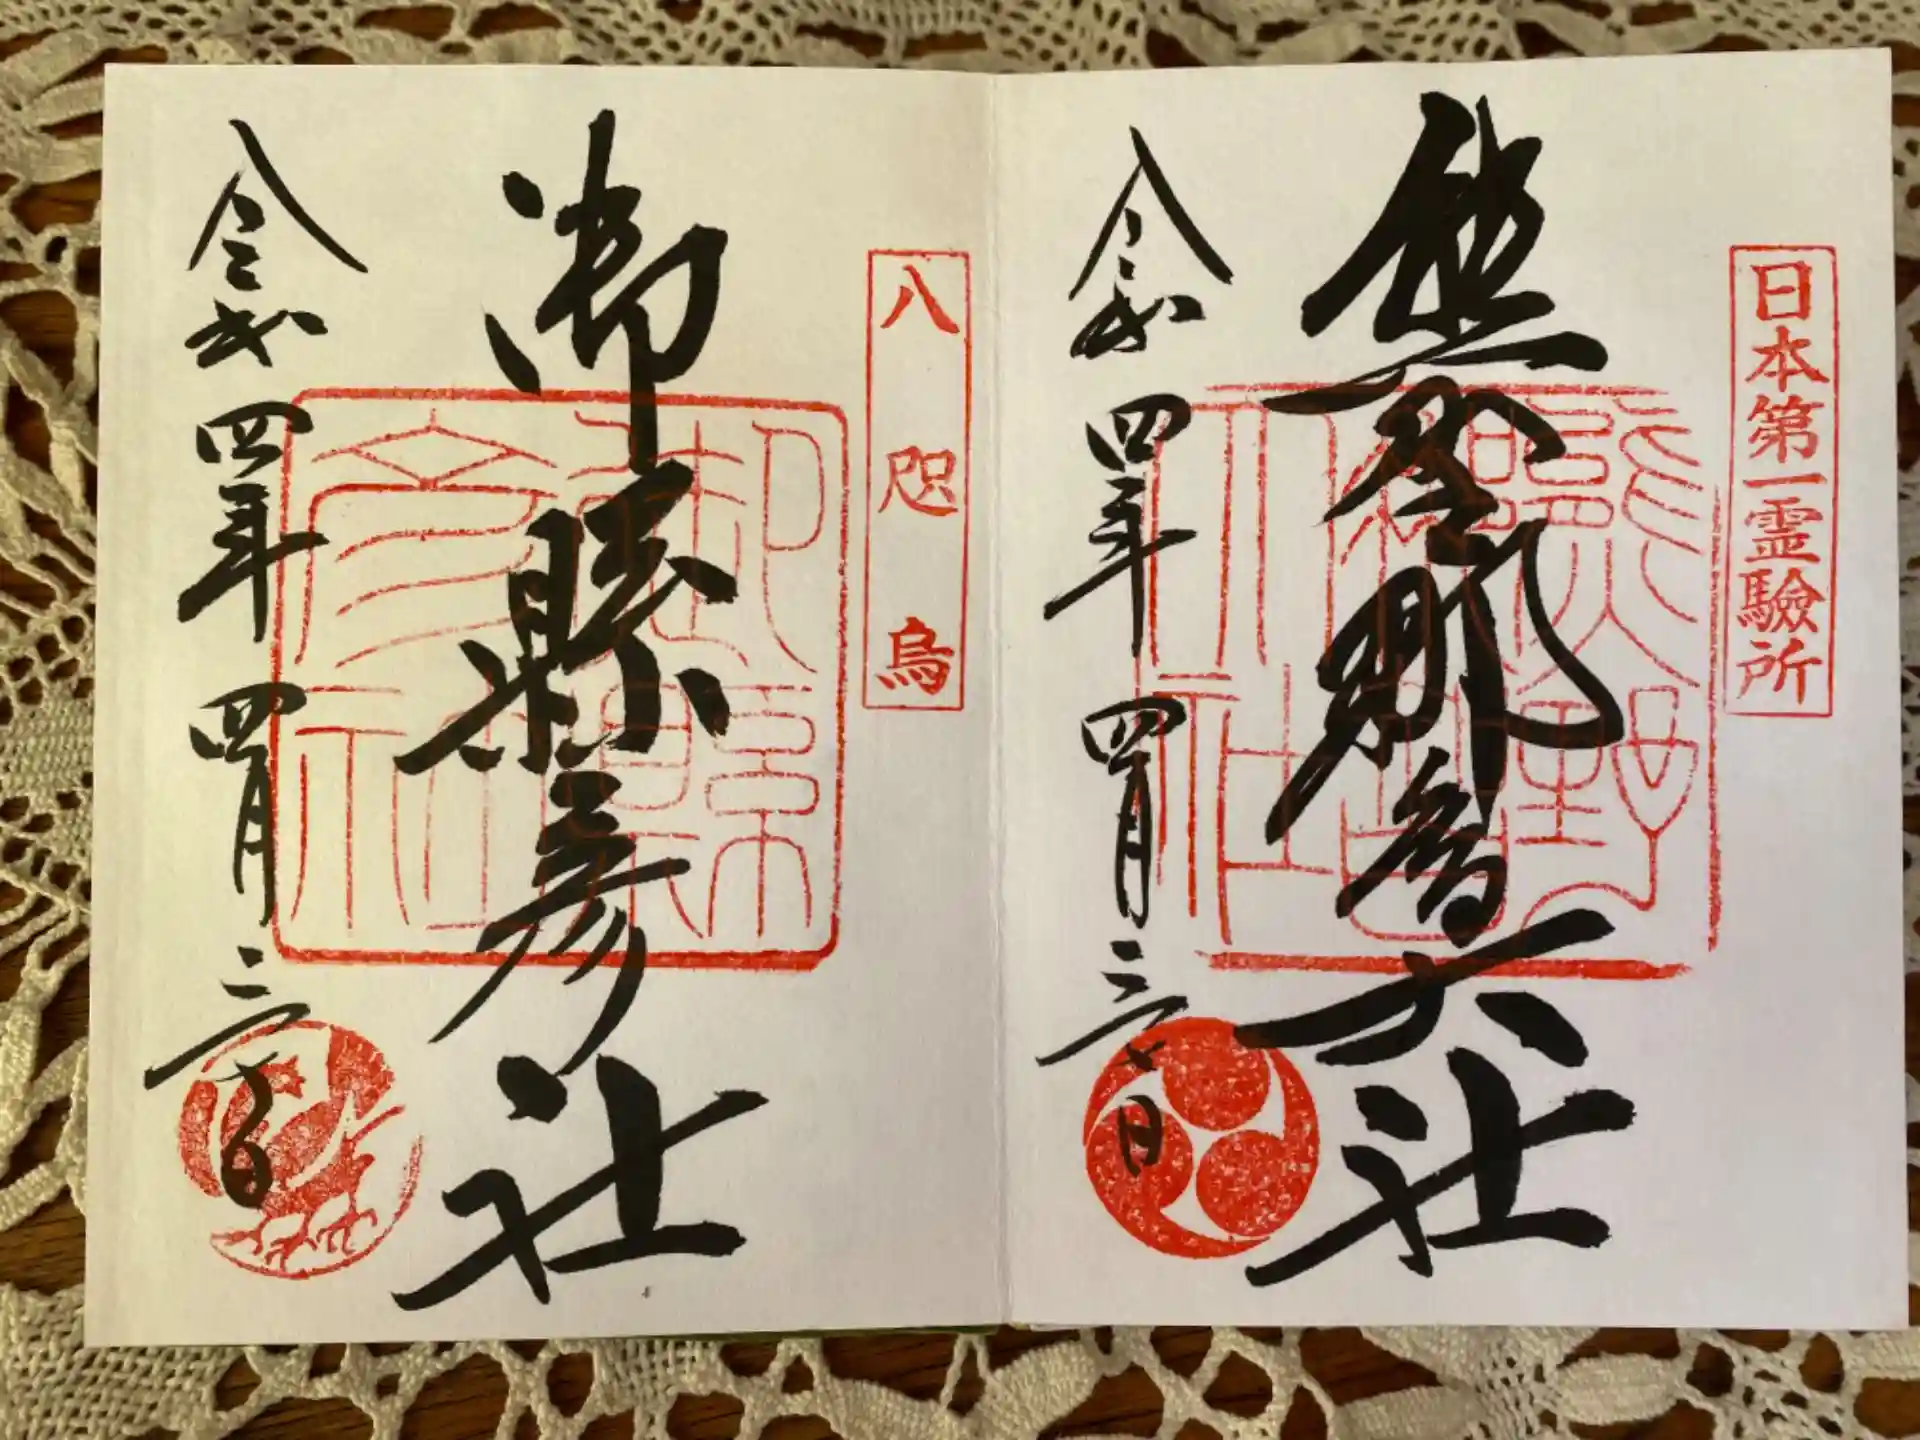 日本第一霊驗所
熊野那智大社
令和四年四月三十日
八咫烏
御縣彦社
御縣彦社
令和四年四月三十日